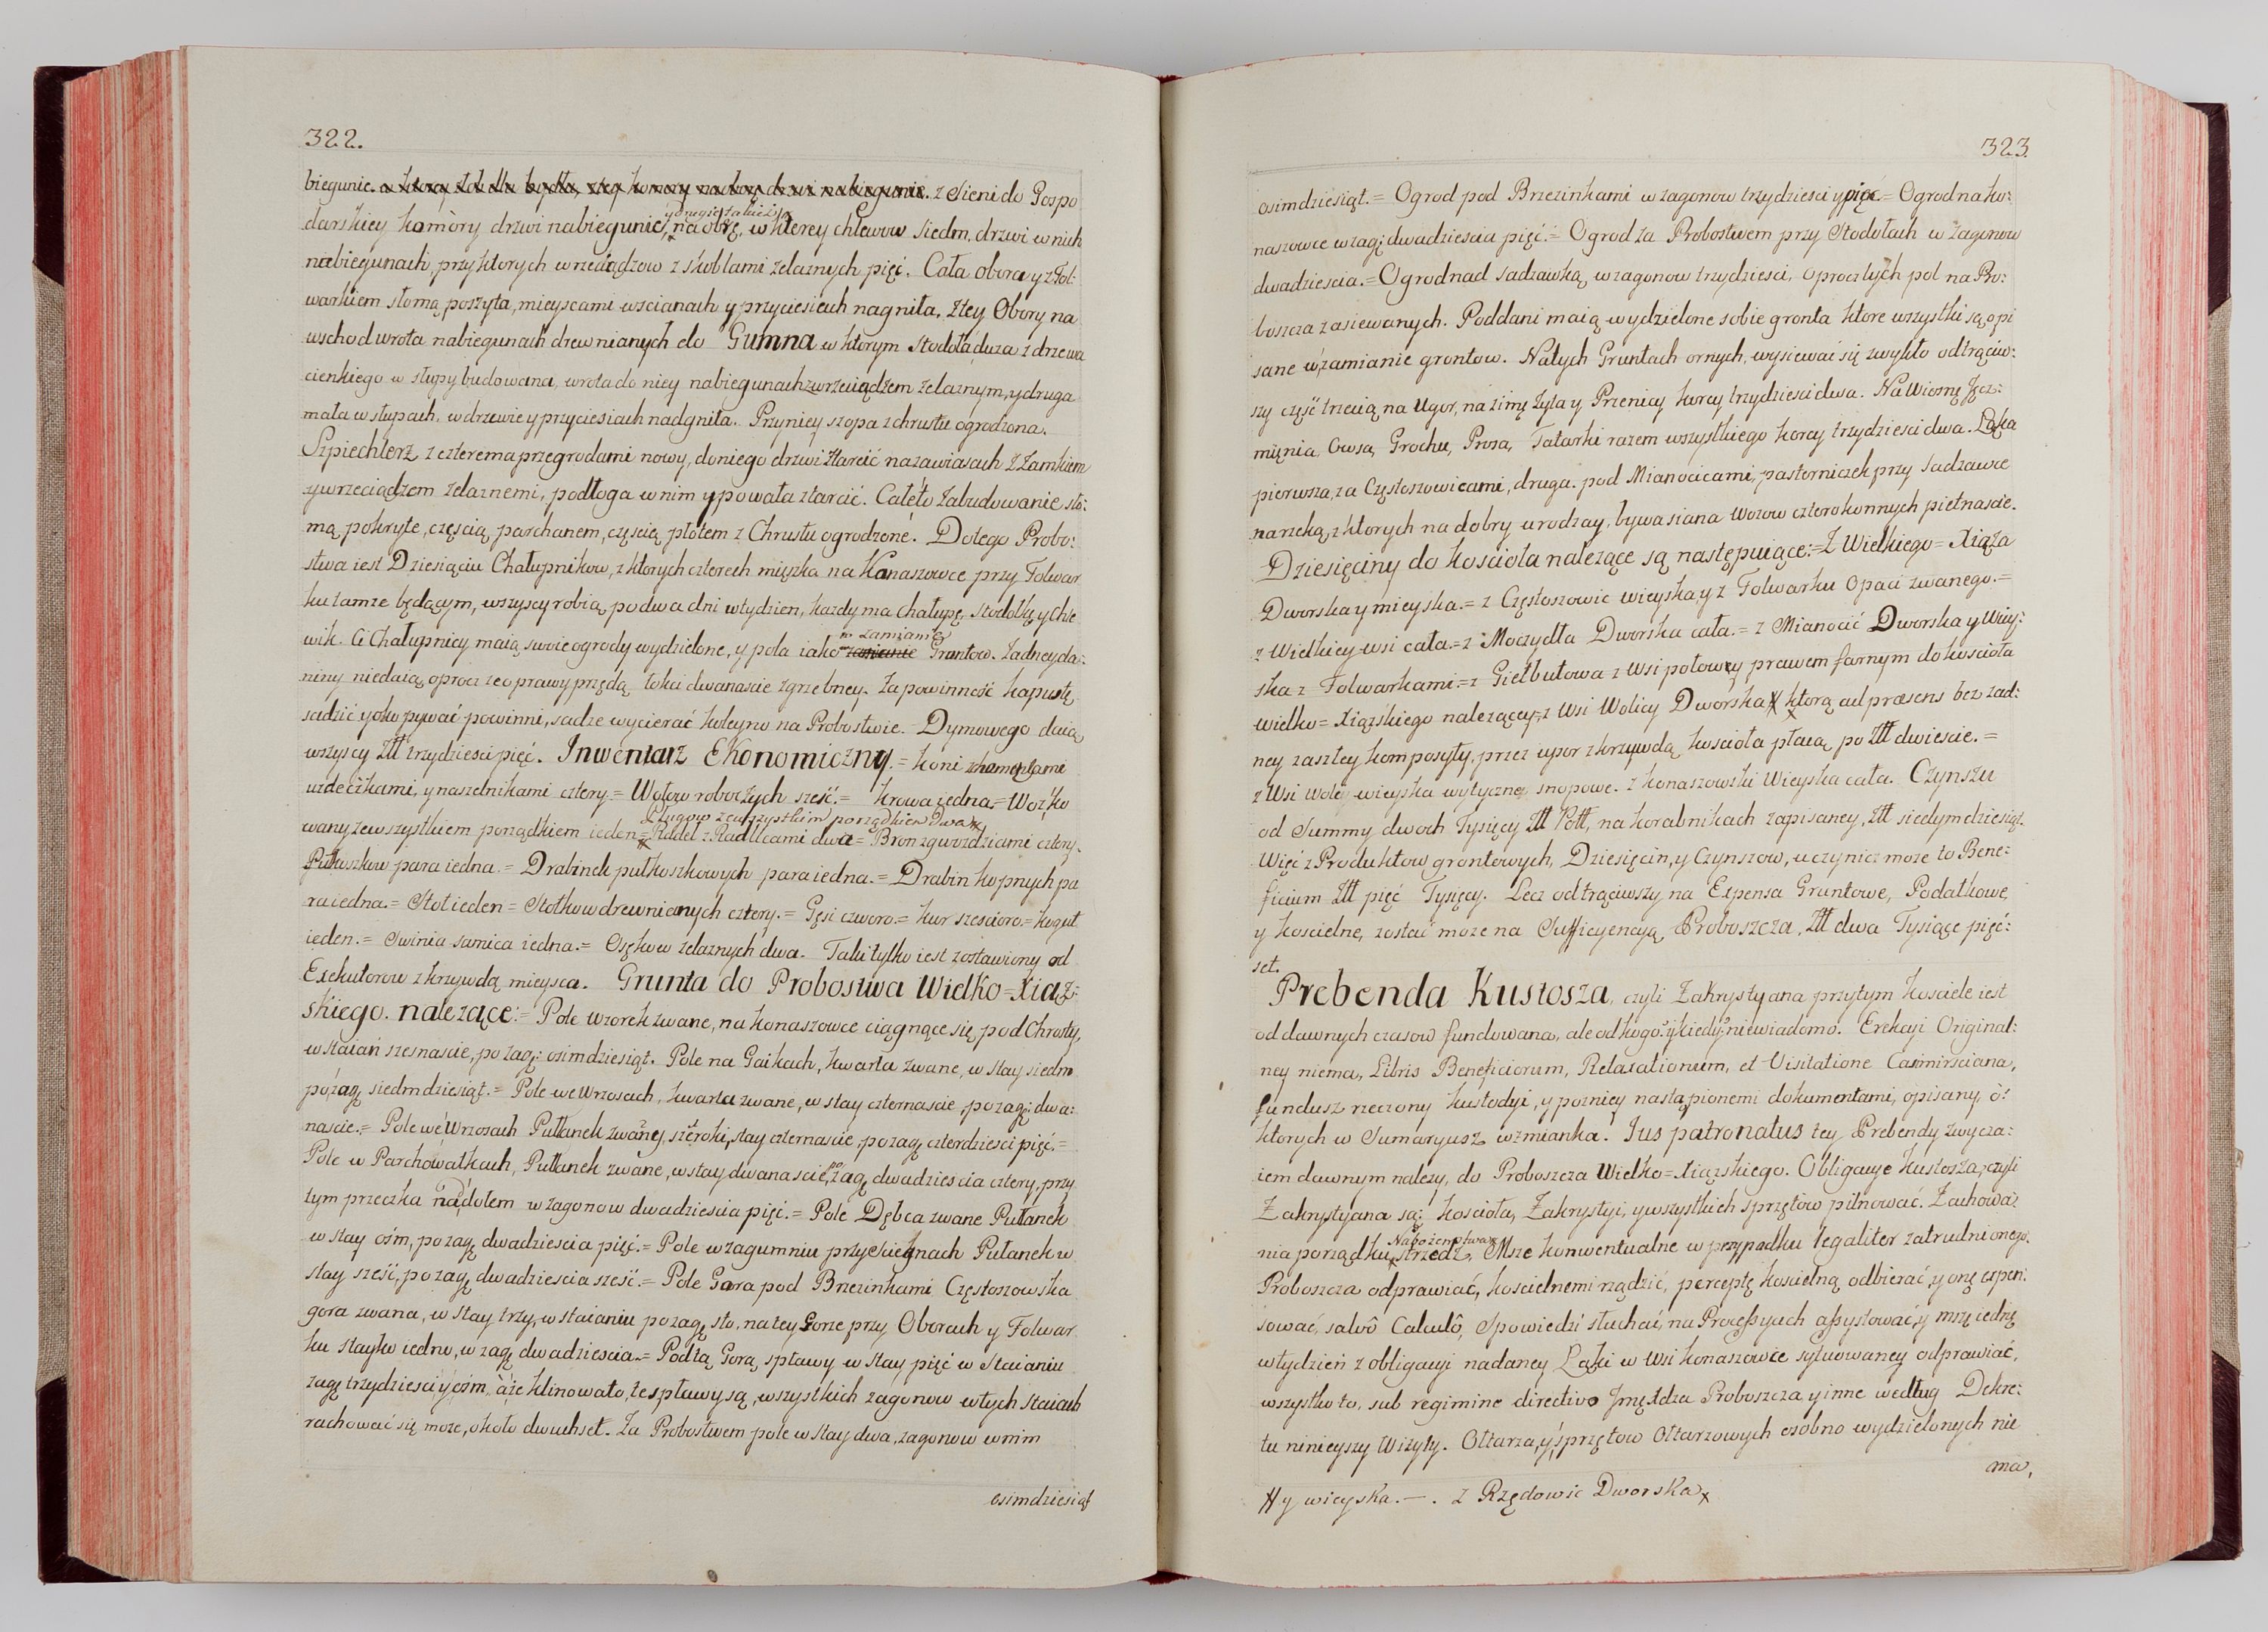 322.
biegunie. z Sieni do Gospo
darskiey komòry drzwi nabiegunie, y drugie takież na obrę, w kterey chlewow siedm, drzwi w nich
nabiegunach, przyktorych wrzeciądzow z skoblami żelaznych pięć. Cała obora y z fol:
warkiem słomą poszyta, mieyscami w scianach y przyciesiach nagniła. Ztey Obory na
wschod wrota nabiegunach drewnianych do Gumna w ktorym Stodoła duza z drzewa
cienkiego w słupy budowana, wrota do niey nabiegunach zwrzeciądzem żelaznym, y druga
mała w słupach, w drzewie y przyciesiach nadgniła. Przyniey szopa z chrustu ogrodzona.
Szpiechlerz z czterema przegrodami nowy, do niego drzwi ztarcić na zawiasach z Zamkiem
y wrzeciądzem żelaznemi, podłoga w nim y powała z tarcić. Całe to Zabudowanie sło:
mą pokryte, częścią parchanem, częścią płotem z Chrustu ogrodzone. Do tego Probo:
stwa iest Dziesiąciu Chałupnikow, z ktorych czterech mięszka na Konaszowce przy Folwar
ku tamże będącym, wszyscy robią po dwa dni w tydzien, kazdy ma chałupę, stodołkę y chle
wik. Ci Chałupnicy maią swoie ogrody wydzielone, y pola iako w zamianie Gruntow. Zadney da:
niny niedaią, oprocz ze oprawy przędą łokci dwanascie zgrzebney. Za powinność kapustę
sadzić y okopywać powinni, sadze wycierać koleyno na Probostwie. Dymowego daią
wszyscy Złł trzydziesci pięć. Inwentarz Ekonomiczny. = koni z homątami
uzdeczkami, y naszelnikami cztery. = Wołow roboczych sześć. = krowa iedna. = Woz ko
wany ze wszystkiem porządkiem ieden = Pługow ze wszystkim porządkiem Dwa Radeł z Radlicami dwa = Bron z gwozdziami cztery.
Pułkoszkow para iedna. = Drabinek pułkoszkowych para iedna. = Drabin kopnych pa
ra iedna. = Stoł ieden = Stołkow drewnianych cztery. = Gęsi czworo. = kur szescioro. = kogut
ieden. = Swinia samica iedna. = Osękow żelaznych dwa. Taki tylko iest zostawiony od
Exekutorow z krzywdą mieysca. Grunta do Probostwa Wielko=Xiąz:
skiego. należące: = Pole Wzorek zwane, na konaszowce ciągnące się, pod Chrosty,
w staiań szesnascie, po zag: osimdziesiąt. Pole na Gaikach, kwarta zwane, w stay siedm
po zagę siedmdziesiąt. = Pole we Wrzosach, kwarta zwane, w stay czternascie, po zagę: dwa:
nascie. = Pole we Wrzosach Pułanek zwaney, szeroki, stay czternascie, po zagę czterdziesci pięć. =
Pole w Parchowatkach, Pułanek zwane, w stay dwanascie, po zagę dwadziescia cztery, przy
tym przeczka nad dołem w zagonow dwadziescia pięć. = Pole Dębca zwane Pułanek
w stay ośm, po zagę dwadziescia pięć. = Pole w zagumniu przy Pułanek w
stay sześć, po zagę dwadziescia sześć. = Pole Gora pod Brzezinkami Częstoszowska
gora zwana, w stay trzy, w staianiu po zagę sto, na tey Gorze przy Oborach y Folwar
ku stayko iedno, w zagę dwadziescia. = Pod tą Gorą spławy w stay pięć w Staianiu
zagę trzydziesci y ośm, a że klinowato, te spławy są, wszystkich zagonow w tych staiach
rachować się może, około dwuchset. Za Probostwem pole w stay dwa, zagonow w nim
osimdziesiąt
323.
osimdziesiąt. = Ogrod pod Brzezinkami w zagonow trzydziesci y pięć = Ogrod na ko:
naszowce w zagę dwadziescia pięć. = Ogrod za Probostwem przy Stodołach w zagonow
dwadziescia. = Ogrod nad sadzawką w zagonow trzydziesci, oprocz tych pol na Pro:
boszcza zasiewanych. Poddani maią wydzielone sobie gronta ktore wszystki są opi
sane w zamianie grontow. Na tych Gruntach ornych, wysiewać się zwykło odtrąciw:
szy część trzecią na Ugor, na zimę Zyta y Pszenicy korcy trzydziesci dwa. Na Wiosnę Jęcz:
mięnia, Owsa, Grochu, Prosa, Tatarki razem wszystkiego korcy trzydziesci dwa. Łąka
pierwsza, za Częstoszowicami, druga. pod Mianocicami, pasterniczek przy sadzawce
na rzeką, z ktorych na dobry urodzay, bywa siana wozow czterokonnych pietnascie.
Dziesięciny do kosciola należące są następuiące: = Z Wielkiego = Xiąża
Dworska y mieyska. = z Częstoszowic wieyska, y z Folwarku Opaci zwanego. =
z Wielkiey wsi cała. = z Moczydła Dworska cała. = z Mianocić Dworska y Wiey:
ska z Folwarkami. = z Giełbułowa z Wsi połowy prawem farnym do kosciola
wielko = Xiązkiego należącey, = z Wsi Wolicy Dworska # ktorą ad præsens bez zad:
ney zaszłey kompozyty, przez upor z krzywdą kosciola płacą po Złł dwiescie. =
z Wsi woley wieyska wytyczna, snopowe. z konaszowki Wieyska cała. Czynszu
od Summy dwoch Tysięcy Złł Poll, na korabnikach zapisaney, Złł siedymdziesiąt.
Więc z Produktow grontowych, Dziesięcin, y Czynszow, uczynicz może to Bene:
ficium Złł pięć Tysięcy. Lecz odtrąciwszy na Expensa Gruntowe, Podatkowe,
y koscielne, zostać moze na Sufficyencyą Proboszcza, Złł dwa Tysiące pięć:
set.
Prebenda Kustosza, czyli Zakrystyana przytym kosciele iest
od dawnych czasow fundowana, ale od kogo? y kiedy? niewiadomo. Erekcyi Original:
ney niema, Libris Beneficiorum, Retaxationum, et Visitatione Casimirsciana,
fundusz rzeczony kustodyi, y pozniey nastąpionemi dokumentami, opisany, o:
ktorych w Sumaryusz wzmianka. Ius patronatus tey Prebendy zwycza:
iem dawnym należy, do Proboszcza Wielko=Xiązskiego. Obligacye kustosza, czyli
Zakrystyana są: kosciola, Zakrystyi, y wszystkich sprzętow pilnować. Zachowa
nia porządku Nabożenstwa strzedz, Msze konwentualne w przypadku legaliter zatrudnionego.
Proboszcza odprawiać, koscielnemi rządzić, perceptę koscielną odbierać, y onę expen:
sować, salvô Calculô, Spowiedzi słuchać, na Processyach assystować, y mszę iednę
w tydzień z obligacyi nadaney Łąki w wsi konaszowce sytuowaney odprawiać,
wszystko to, sub regimine directivo Jmęxdza Proboszcza y inne według Dekre:
tu ninieyszy Wizyty. Ołtarza, y sprzętow Ołtarzowych osobno wydzielonych nie
ma,
# y wieyska. —. z Rzędowic Dworska